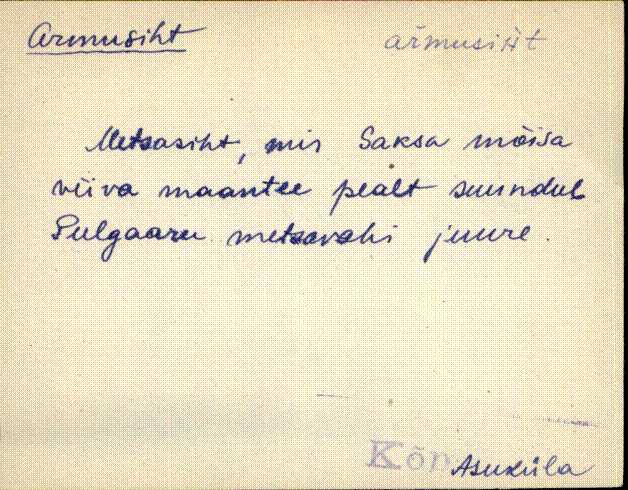 Armusiht
armusiht
Metsasiht, mis Saksa mõisa
viiva maantee pealt suundub
Sulgaaru metsavahi juure.
Kõn
Asuküla